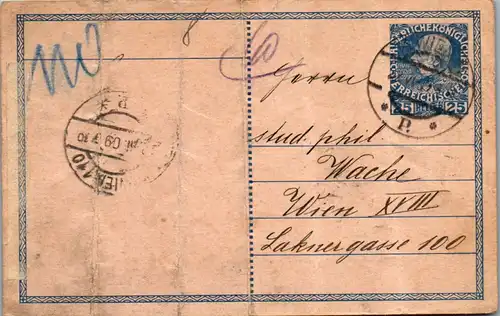 110
8
KAISERLICHE KÖNIGLICHE
ÖSTERREICHISCHE
25 25
WIEN
* P. *
Herrn
stud. phil
Wache
Wien XVIII
Laknergasse 100
* P *
09
WIEN 110